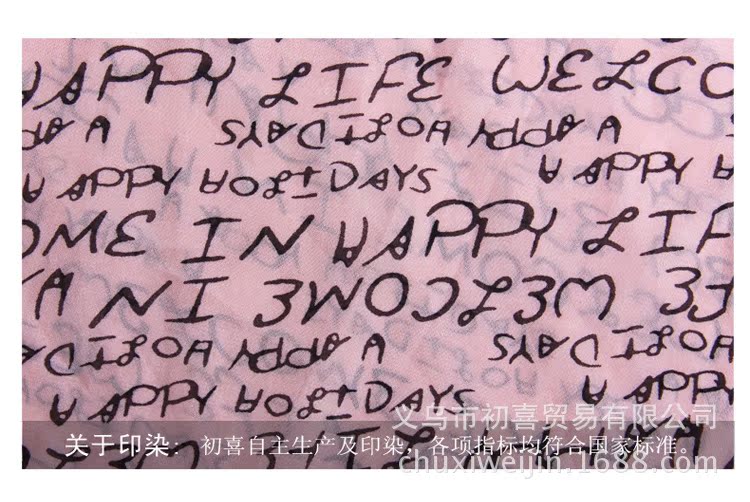 HAPPY LIFE WELCO
HAPPY HOLIDAYS
HAPPY HOLIDAYS HAPPY
OME IN HAPPY LIF
WELCOME IN HA
HAPPY HOLIDAYS
HAPPY HOLIDAYS HAPPY
义乌市初喜贸易有限公司
关于印染：初喜自主生产及印染，各项指标均符合国家标准。
chuxiweijin.1688.com